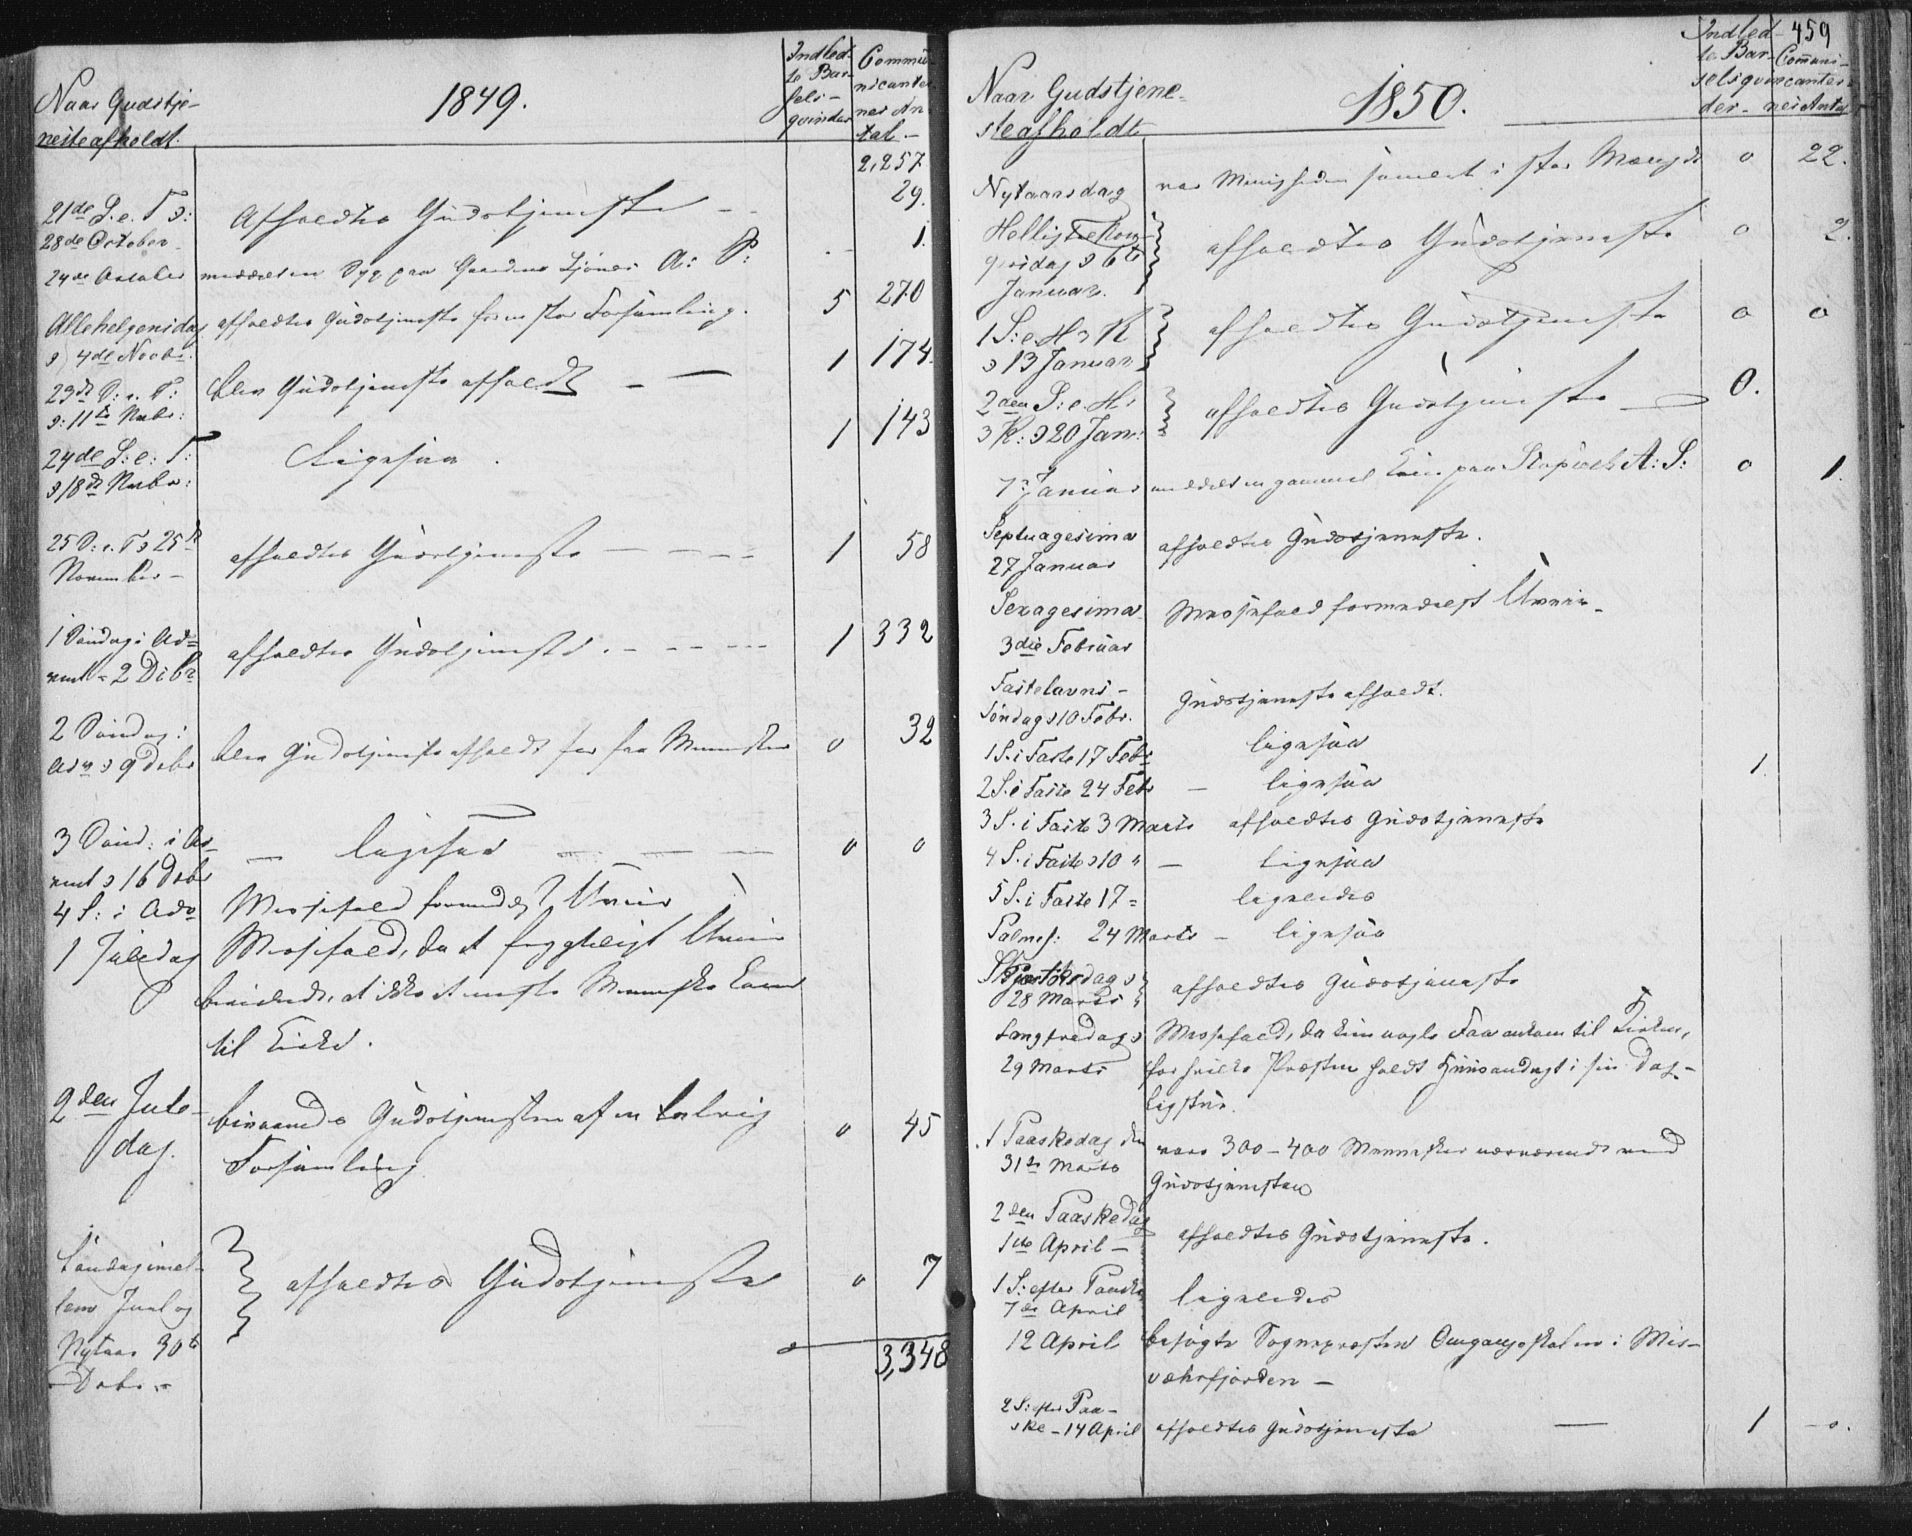 Naar Gudstje-
neste afholdt.
1849.
Indled-
te Bar-
sels-
qvinder
Commu-
nicanter-
nes An-
tal -
2,257
21de S. e. T. ɔ: 28de October - Afholdtes Gudstjeneste - - 29.
24de October meddeelt en Syg paa Gaarden A: S: - 1.
Allehelgensdag ɔ 4de Novbr. afholdtes Gudstjeneste for en stor Forsamling. 5 270
23de S: e. T: ɔ: 11te Novbr: blev Gudstjeneste afholdt - — 1 174.
24de S: e: T: ɔ 18de Novbr: Ligesaa . 1 143
25 S: e. T ɔ 25de November - afholdtes Gudstjeneste - - - - 1 58
1 Søndag i Ad-
vent - 2 Decbr afholdtes Gudstjeneste . - - - - 1 332
2 Søndag i
Adv ɔ 9 Decbr blev Gudstjeneste afholdt for faa Mennesker 0 32
3 Sønd: i Ad-
vent ɔ 16 Decbr — ligesaa — - — 0 0
4 S: i Adv Messefald formedelst Uveir
1 Juledag Messefald, da et frygteligt Uveir
bevirkede, at ikke et eneste Menneske kom
til Kirke.
2den Jule-
dag. bivaanedes Gudstjenesten af en talrig
Forsamling. 0 45
Søndag imel-
lem Juul og
Nytaar 30te
Decbr. afholdtes Gudstjeneste 0 7
3,348
459
Naar Gudstjene-
ste afholdt
1850.
Indled-
te Bar-
selsqvin-
der -
Communi-
canter-
nes Antal
Nytaarsdag var Menigheden samlet i stor Mængde 0 22.
Hellig tre Kon-
gersdag ɔ 6te
Januar. afholdtes Gudstjeneste 0 2.
1 S: e. H 3 K
ɔ 13 Januar afholdtes Gudstjeneste 0 0
2den S: e. H.
3 K: ɔ 20 Jan: afholdtes Gudstjeneste — 0.
7 Januar meddelt en gammel Kone paa A: S: 0 1.
Septuagesima
27 Januar afholdtes Gudstjeneste.
Sexagesima
3die Februar Messefald formedelst Uveir.
Fastelavns -
Søndag ɔ 10 Febr. Gudstjeneste afholdt.
1 S. i Faste 17 Febr ligesaa 1.
2 S. i Faste 24 Febr - ligesaa
3 S. i Faste 3 Marts afholdtes Gudstjeneste
4 S. i Faste ɔ 10 " — Ligesaa
5 S. i Faste 17 = ligeledes
Palmes: 24 Marts - ligesaa
Skjærtorsdag ɔ
28 Marts afholdtes Gudstjeneste
Langfredag ɔ
29 Marts Messefald, da kun nogle Faa ankom til Kirken,
for hvilke Præsten holdt Huusandagt i sin Dag-
ligstue.
1 Paaskedag den
31te Marts vare 300-400 Mennesker nærværende ved
Gudstjenesten
2den Paaskedag
1ste April - afholdtes Gudstjeneste.
1 S: efter Paaske
7de April ligeledes
12 April besøgte Sognepræsten Omgangsskolen i Mis-
værfjorden -
2 S: efter Paa-
ske - 14 April afholdtes Gudstjeneste — 1 - 0.